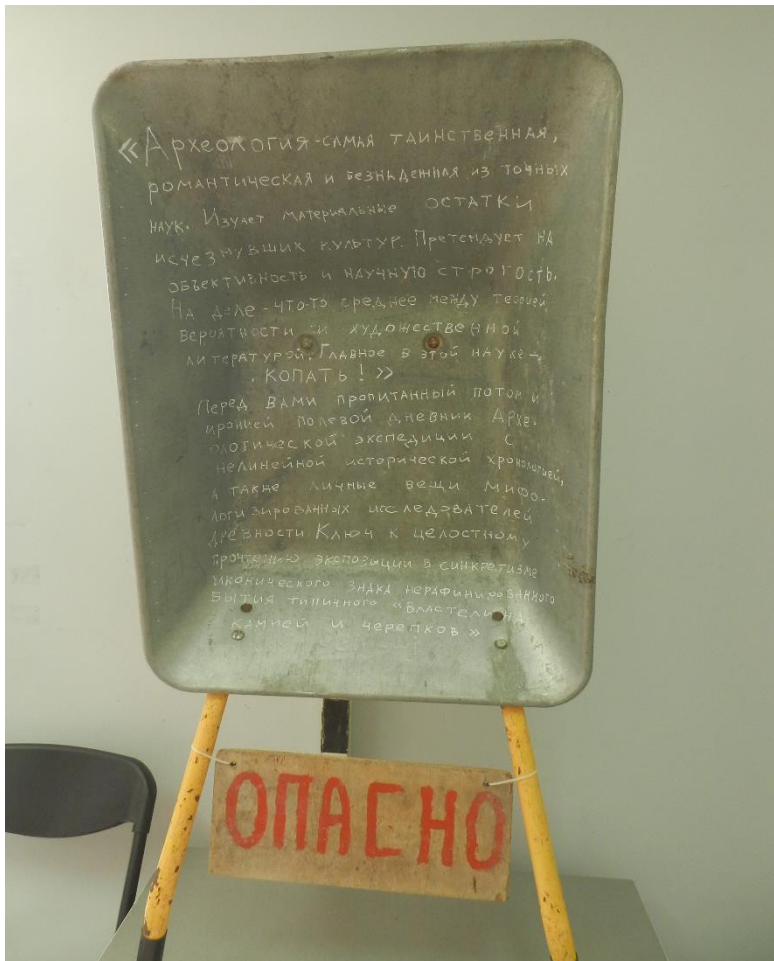 «Археология-самая таинственная,
романтическая и безнадежная из точных
наук. Изучает материальные остатки
исчезнувших культур. Претендует на
объективность и научную строгость.
На деле - что-то среднее между теорией
вероятности и художественной
литературой. Главное в этой науке -
КОПАТЬ!»
Перед вами пропитанный потом и
иронией полевой дневник Архе-
ологической экспедиции с
нелинейной исторической хронологией,
а также личные вещи мифо-
логизированных исследователей
древности Ключ к целостному
прочтению экспозиции в синкретизме
иконического знака нерафинированного
бытия типичного «властелина
камней и черепков»
ОПАСНО